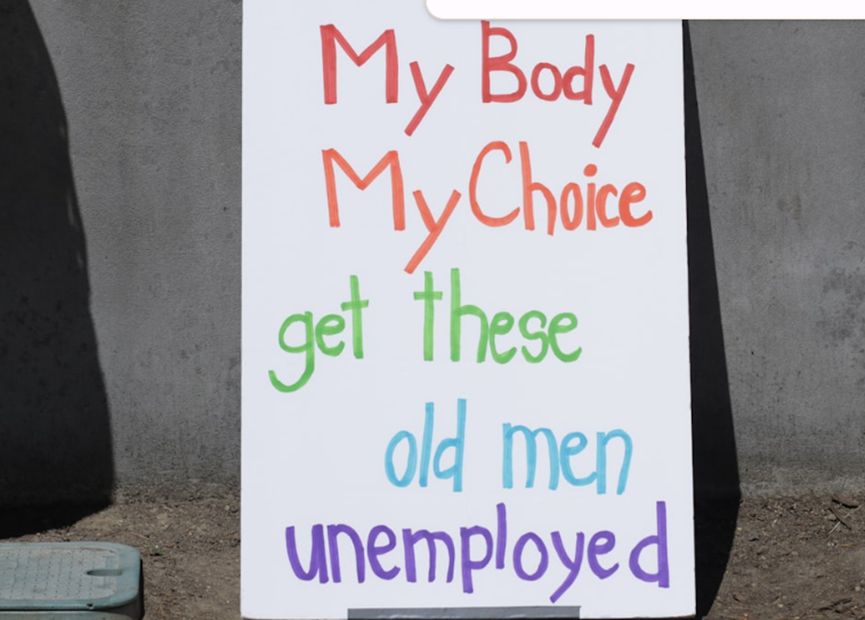 My Body
My Choice
get these
old men
unemployed